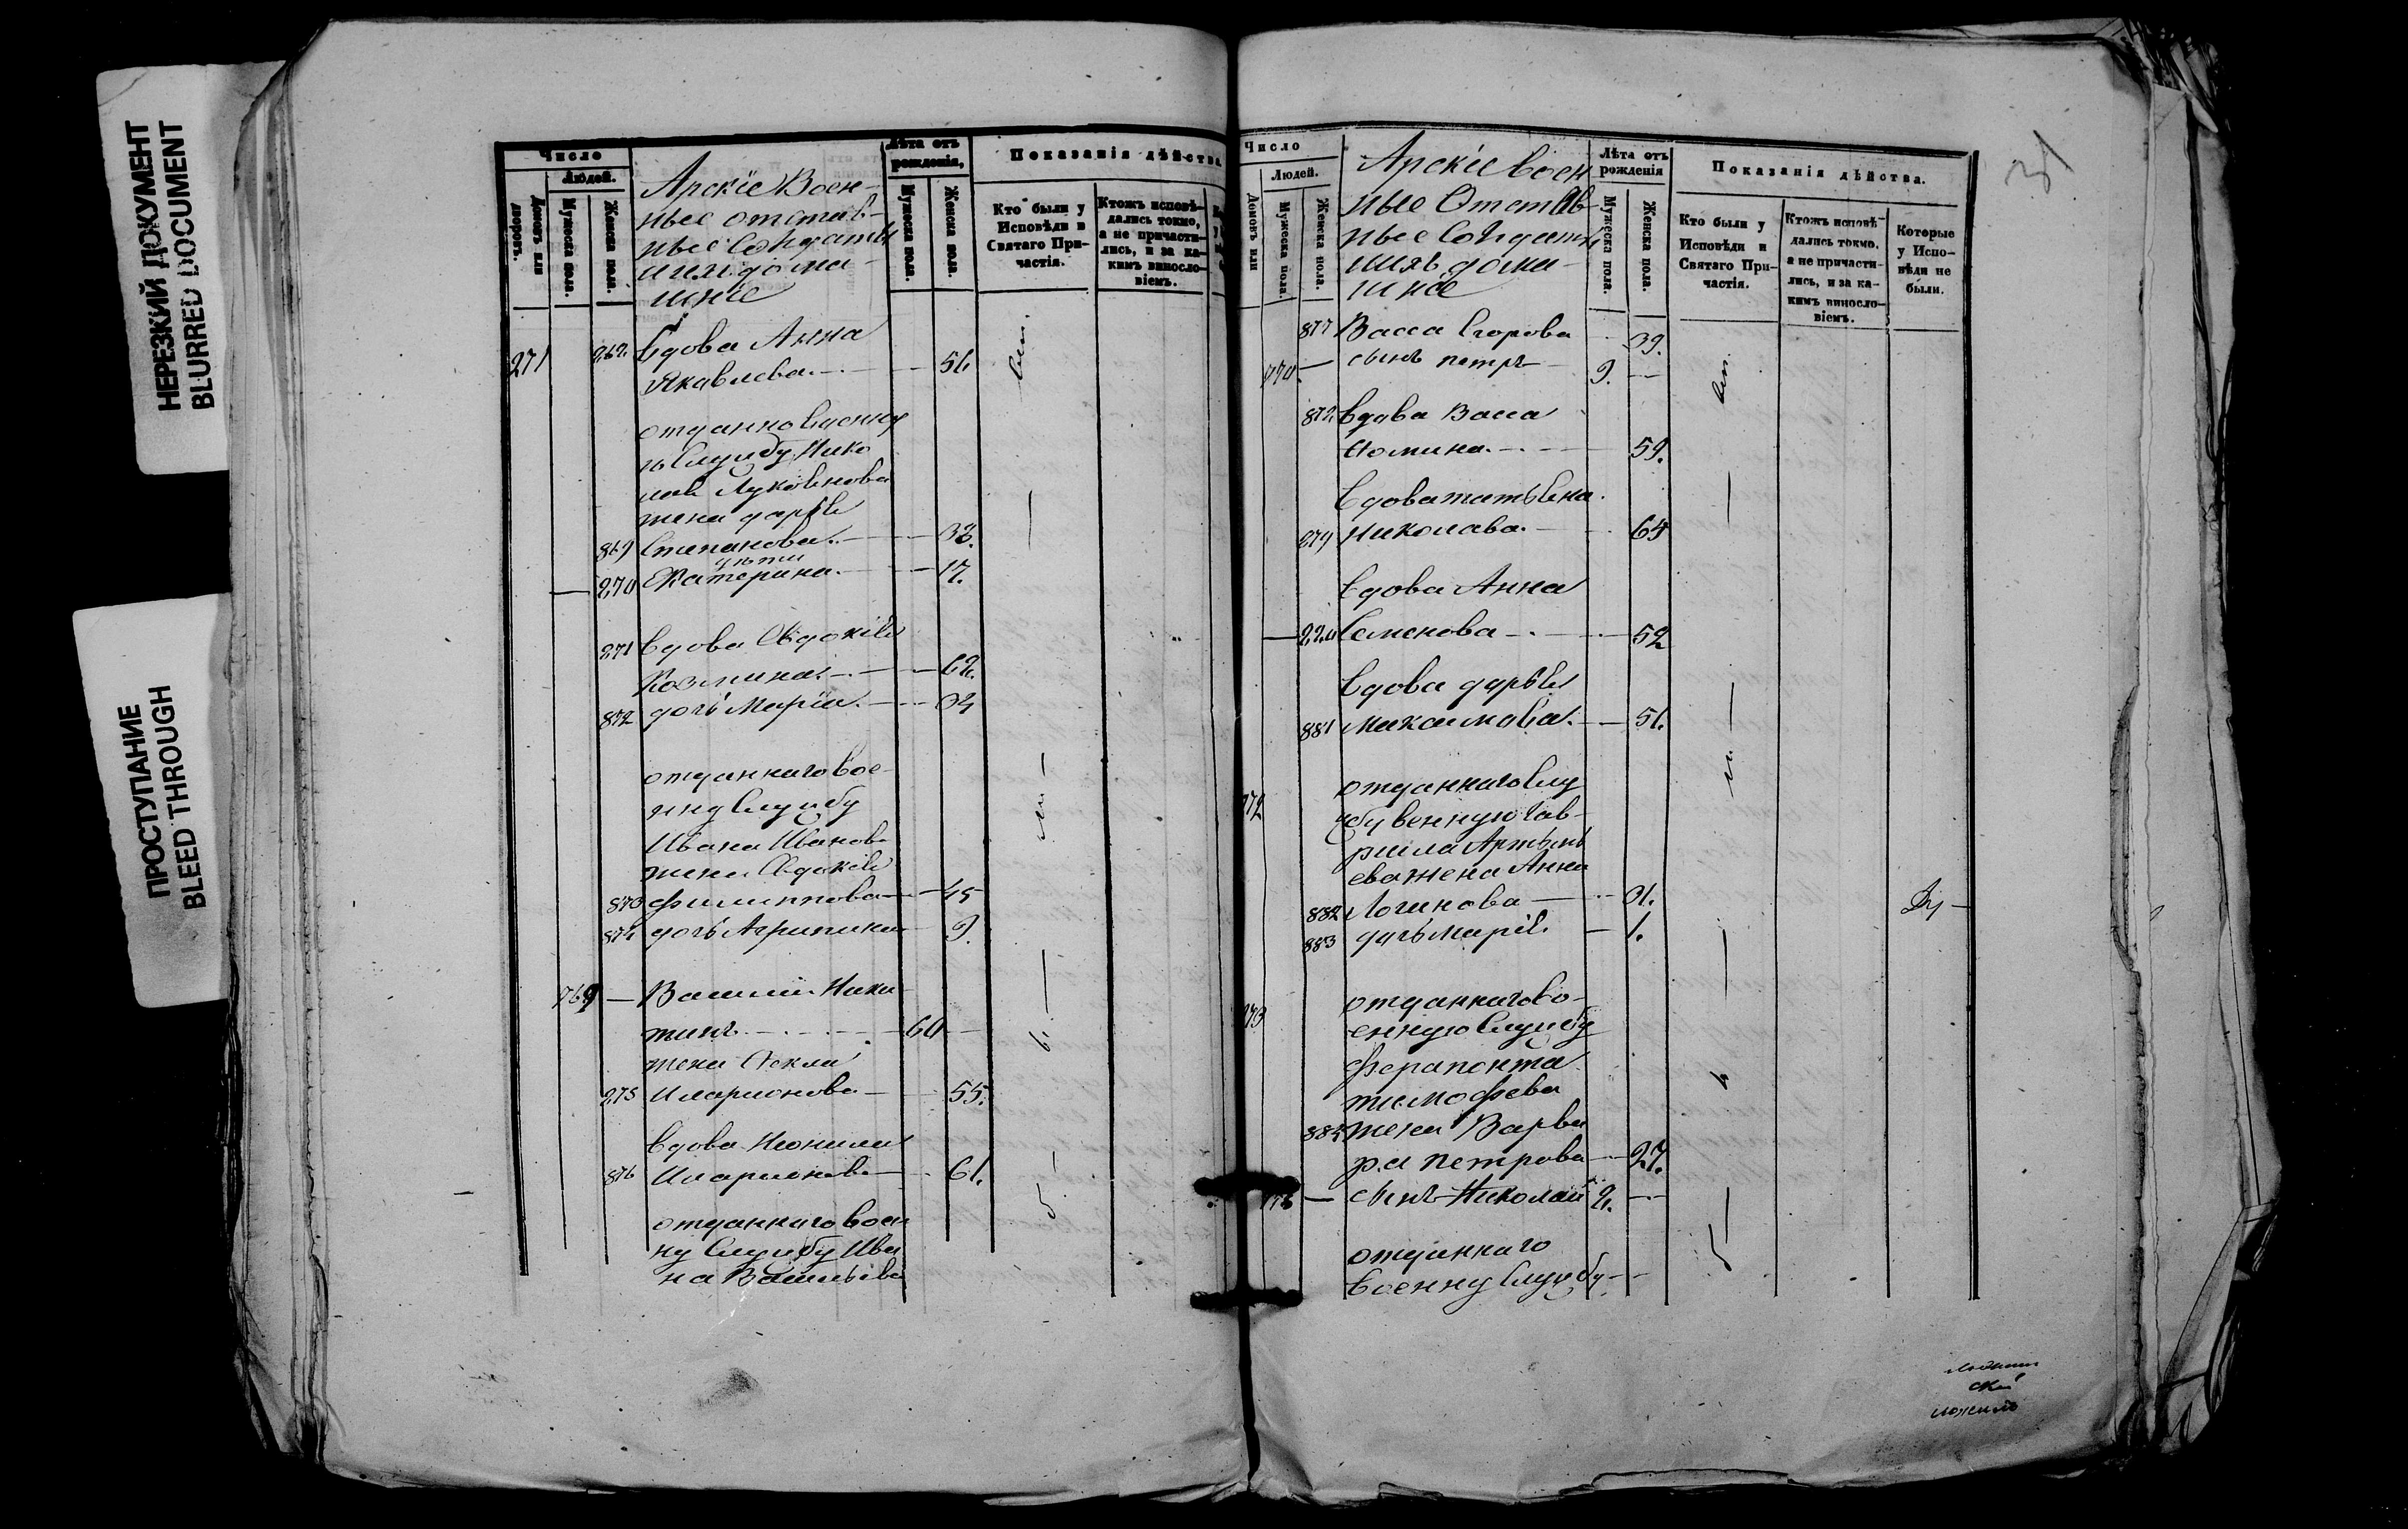 НЕРЕЗКИЙ ДОКУМЕНТ
BLURRED DOCUMENT
ПРОСТУПАНИЕ
BLEED THROUGH
Число
Людей.
Домовъ или дворовъ.
Мужеска пола.
Женска пола.
Арскіе Воен-
ные отстав-
ные Солдаты
и ихъ дома-
шніе
Лѣта отъ рожденія,
Мужеска пола.
Женска пола.
Показанія дѣйства
Кто были у Исповѣди и Святаго При-частія.
Ктожъ исповѣ-дались токмо, а не причасти-лись, и за ка-кимъ винносло-віемъ.
271 Вдова Анна
Яковлева 56
отданно военну
ю Службу Нико
лая
жена дарья
869 Степанова 38.
дѣти
870 Екатерина 17.
871 Вдова Евдокія
Козмина 62.
872 дочь Марія 34
отданнаго вое-
нну Службу
Ивана Иванова
жена Евдокія
873 Филиппова 45
874 дочь Агрипина 9.
769 Василий Ники-
тинъ 60
жена Фекла
875 Иларионова 55.
Вдова Неонила
876 Иларионова 61.
отданнаго воен
ну Службу Ива
на Васильева
31
Число
Людей.
Домовъ или
Мужеска пола.
Женска пола.
Арскіе воен
ные Отстав-
ные Солдаты
и ихъ дома-
шніе
Лѣта отъ рожденія
Мужеска пола.
Женска пола.
Показанія дѣйства.
Кто были у Исповѣди и Святаго При-частія.
Ктожъ исповѣ-дались токмо, а не причасти-лись, и за ка-кимъ винносло-віемъ.
Которые у Испо-вѣди не были.
877 Васса Егорова 39.
770 сынъ петръ 9.
878 вдова Васса
Фомина 59.
Вдова татьяна
879 Николаева 64
Вдова Анна
880 Семенова 52
Вдова дарья
881 Максимова 51.
272 отданнаго Слу
жбу военную Гав-
рила Артемь
ева жена Анна
882 Логинова 31.
883 дочь Марія 1.
273 отданнаго во-
енную Службу
Ферапонта
тимофеева
884 жена Варва
ра петрова 27.
сынъ Николай 2.
отданнаго
военну Службу